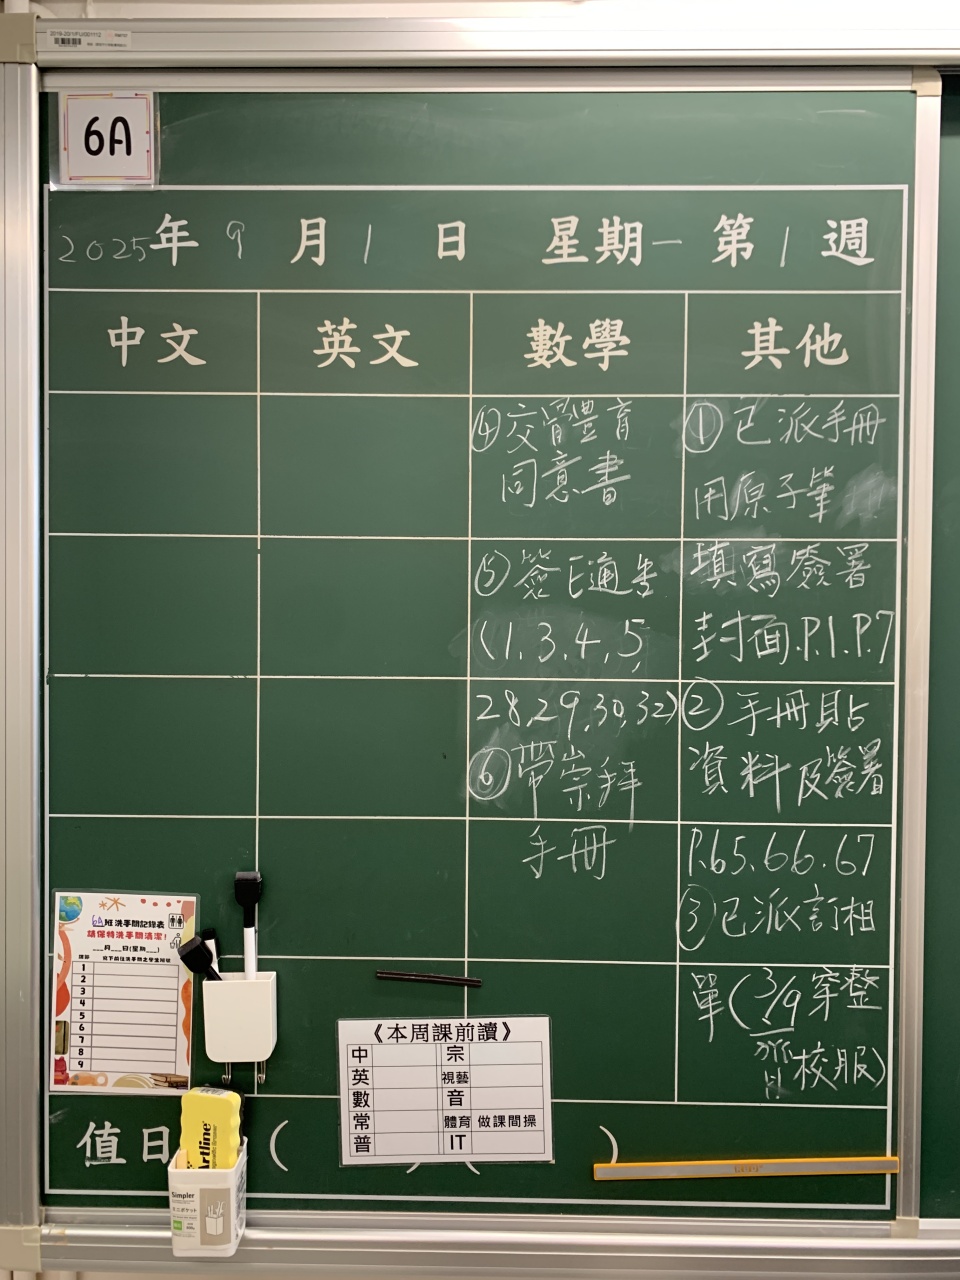 2019-2021/FU/001112
6A
2025年9月1日 星期一 第1週
中文 英文 數學 其他
④交體育
同意書
⑤簽E通告
(1,3,4,5,
28,29,30,32)
⑥帶崇拜
手冊
①已派手冊
用原子筆
填寫簽署
封面.P.1.P.7
②手冊貼
資料及簽署
P.65.66.67
③已派訂相
單(3/9穿整
齊校服)
6A班洗手間記錄表
請保持洗手間清潔!
___月___日(星期___)
1
2
3
4
5
6
7
8
9
《本周課前讀》
中 宗
英 視藝
數 音
常 體育 做課間操
普 IT
值日
( ) ( )
Artline
Simpler
ミニポケット